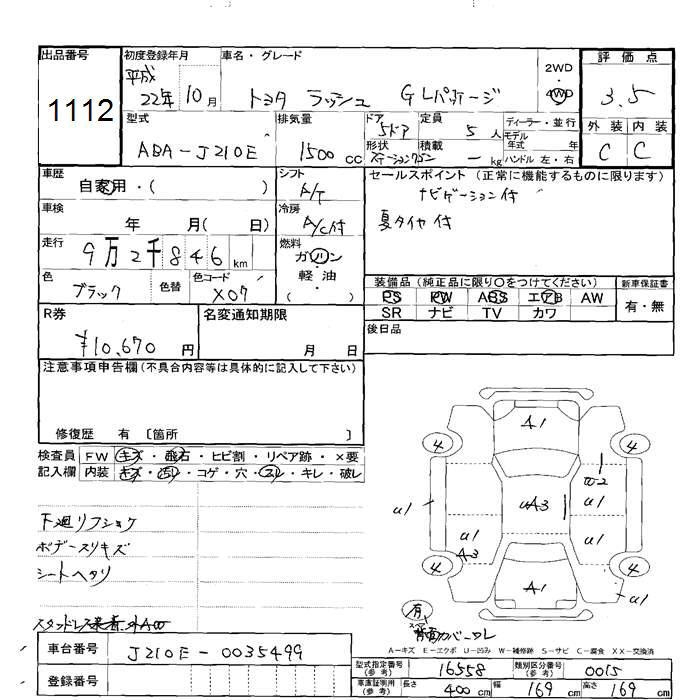 出品番号
1112
初度登録年月
平成
22年 10月
車名・グレード
トヨタ ラッシュ GLパッケージ
2WD
4WD
評価点
3.5
外装 内装
C C
型式
ABA-J210E
排気量
1500 cc
ドア
5ドア
定員
5人
形状
ステーションワゴン
積載
- kg
ディーラー・並行
モデル
年式 年
ハンドル 左・右
車歴
自家用・( )
シフト
A/T
セールスポイント (正常に機能するものに限ります)
ナビゲーション付
夏タイヤ付
車検
年 月( 日)
冷房
A/C付
走行
9万2千846 km
燃料
ガソリン
軽・油
( )
色
ブラック
色替
色コード
X07
装備品 (純正品に限り○をつけてください)
PS PW ABS エアB AW
SR ナビ TV カワ
新車保証書
有・無
R券
¥10,670 円
名変通知期限
月 日
後日品
注意事項申告欄(不具合内容等は具体的に記入して下さい)
修復歴 有 〔箇所 〕
検査員
記入欄
FW キズ・飛石・ヒビ割・リペア跡・×要
内装 キズ・汚レ・コゲ・穴・スレ・キレ・破レ
下廻リフショク
ボデースリキズ
シートヘタリ
A1
4 4
W2
u1 uA3 u1
u1 u1
A3
4 4
A1
u1
有
背面カバーワレ
A-キズ E-エクボ U-凹み W-補修跡 S-サビ C-腐食 XX-交換済
車台番号
J210E-0035499
登録番号
型式指定番号
(参考)
16558
類別区分番号
(参考)
0015
車庫証明用
(参考)
長さ 400 cm 幅 169 cm 高さ 169 cm